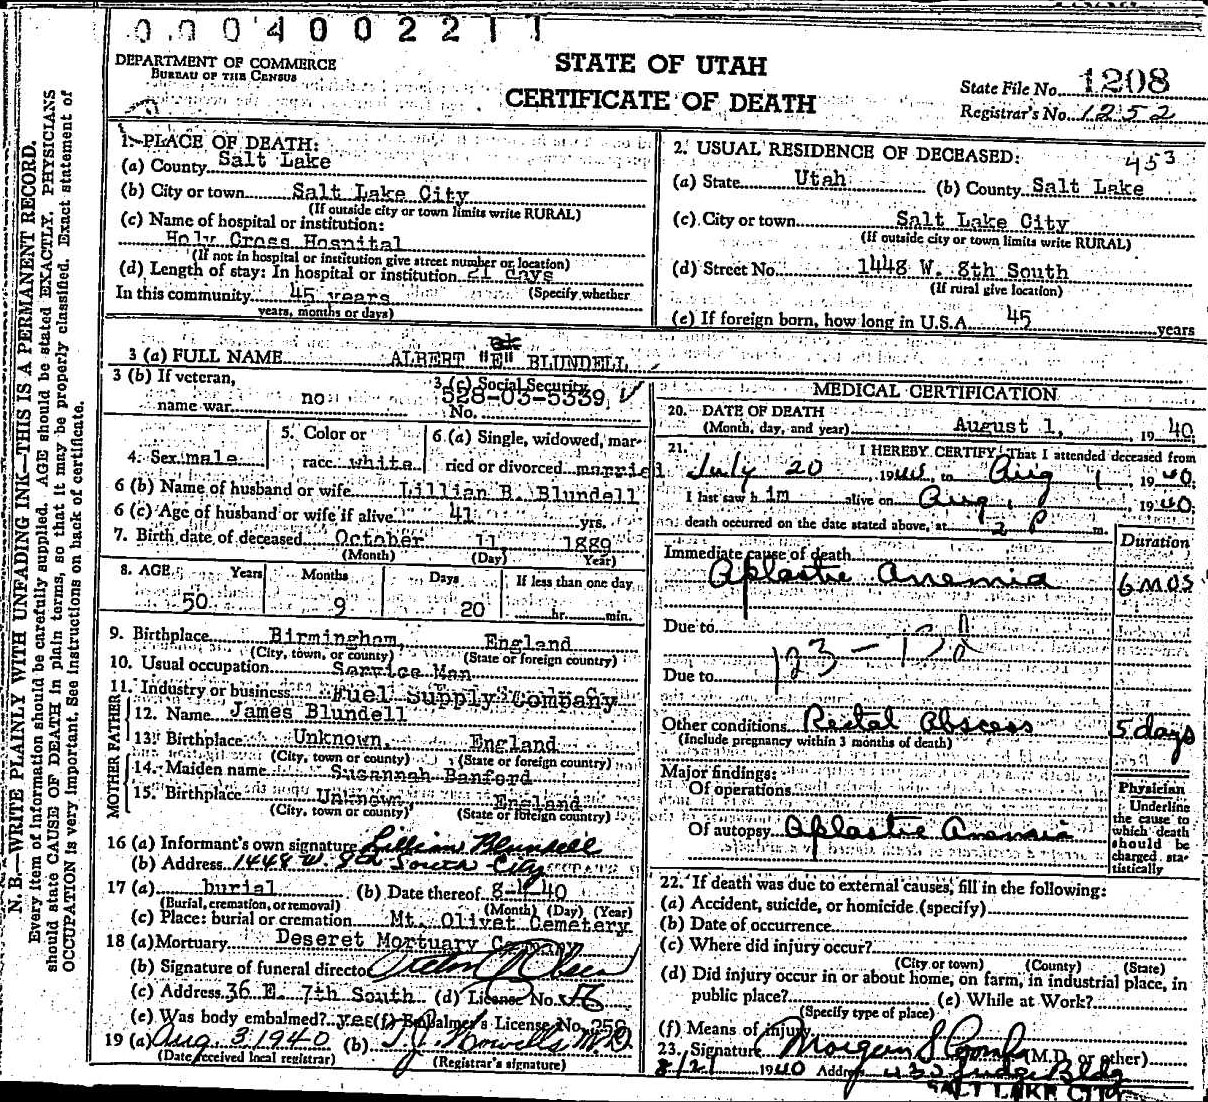 0 0 0 4 0 0 2 2 1 1
DEPARTMENT OF COMMERCE
BUREAU OF THE CENSUS
STATE OF UTAH
CERTIFICATE OF DEATH
State File No. 1208
Registrar's No. 1252
N. B.—WRITE PLAINLY WITH UNFADING INK—THIS IS A PERMANENT RECORD.
Every item of information should be carefully supplied. AGE should be stated EXACTLY. PHYSICIANS
should state CAUSE OF DEATH in plain terms, so that it may be properly classified. Exact statement of
OCCUPATION is very important. See instructions on back of certificate.
1. PLACE OF DEATH:
(a) County Salt Lake
(b) City or town Salt Lake City
(If outside city or town limits write RURAL)
(c) Name of hospital or institution:
Holy Cross Hospital
(If not in hospital or institution give street number or location)
(d) Length of stay: In hospital or institution 21 days
In this community 45 years (Specify whether
years, months or days)
2. USUAL RESIDENCE OF DECEASED: 453
(a) State Utah (b) County Salt Lake
(c) City or town Salt Lake City
(If outside city or town limits write RURAL)
(d) Street No. 1448 W. 8th South
(If rural give location)
(e) If foreign born, how long in U.S.A. 45 years
3 (a) FULL NAME ALBERT "E" BLUNDELL
3 (b) If veteran,
name war no
3 (c) Social Security
No. 528-03-5339
4. Sex male
5. Color or
race white
6 (a) Single, widowed, mar-
ried or divorced married
6 (b) Name of husband or wife Lillian B. Blundell
6 (c) Age of husband or wife if alive 41 yrs.
7. Birth date of deceased October 11 1889
(Month) (Day) Year)
8. AGE Years Months Days If less than one day
50 9 20 hr. min.
9. Birthplace Birmingham, England
(City, town, or county) (State or foreign country)
10. Usual occupation Service Man
11. Industry or business Fuel Supply Company
FATHER
12. Name James Blundell
13. Birthplace Unknown, England
(City, town or county) (State or foreign country)
MOTHER
14. Maiden name Susannah Banford
15. Birthplace Unknown, England
(City, town or county) (State or foreign country)
16 (a) Informant's own signature Lillian Blundell
(b) Address 1448 W. 8th South City
17 (a) burial (b) Date thereof 8-4-40
(Burial, cremation, or removal) (Month) (Day) (Year)
(c) Place: burial or cremation Mt. Olivet Cemetery
18 (a) Mortuary Deseret Mortuary Company
(b) Signature of funeral director
(c) Address 36 E. 7th South (d) License No. 56
(e) Was body embalmed? yes (f) Embalmer's License No. 258
19 (a) Aug 3 1940 (b) Howells M.D.
(Date received local registrar) (Registrar's signature)
MEDICAL CERTIFICATION
20. DATE OF DEATH
(Month, day, and year) August 1, 1940
21. I HEREBY CERTIFY That I attended deceased from
July 20, 1940 to Aug 1, 1940;
I last saw him alive on Aug 1, 1940;
death occurred on the date stated above, at 2 P m.
Duration
Immediate cause of death
Aplastic Anemia 6 mos
Due to
Due to
Other conditions Rectal Abscess 5 days
(Include pregnancy within 3 months of death)
Major findings:
Of operations
Of autopsy Aplastic Anemia
Physician
Underline
the cause to
which death
should be
charged sta-
tistically
22. If death was due to external causes, fill in the following:
(a) Accident, suicide, or homicide (specify)
(b) Date of occurrence
(c) Where did injury occur?
(City or town) (County) (State)
(d) Did injury occur in or about home, on farm, in industrial place, in
public place? (e) While at Work?
(Specify type of place)
(f) Means of injury
23. Signature Morgan S. (M.D. or other)
8/2/ 1940 Address Judge Bldg
SALT LAKE CITY